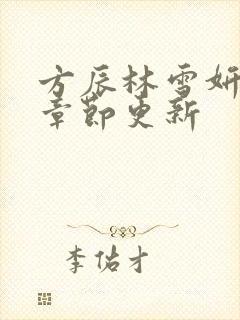 方辰林雪妍
章节更新
李佑才